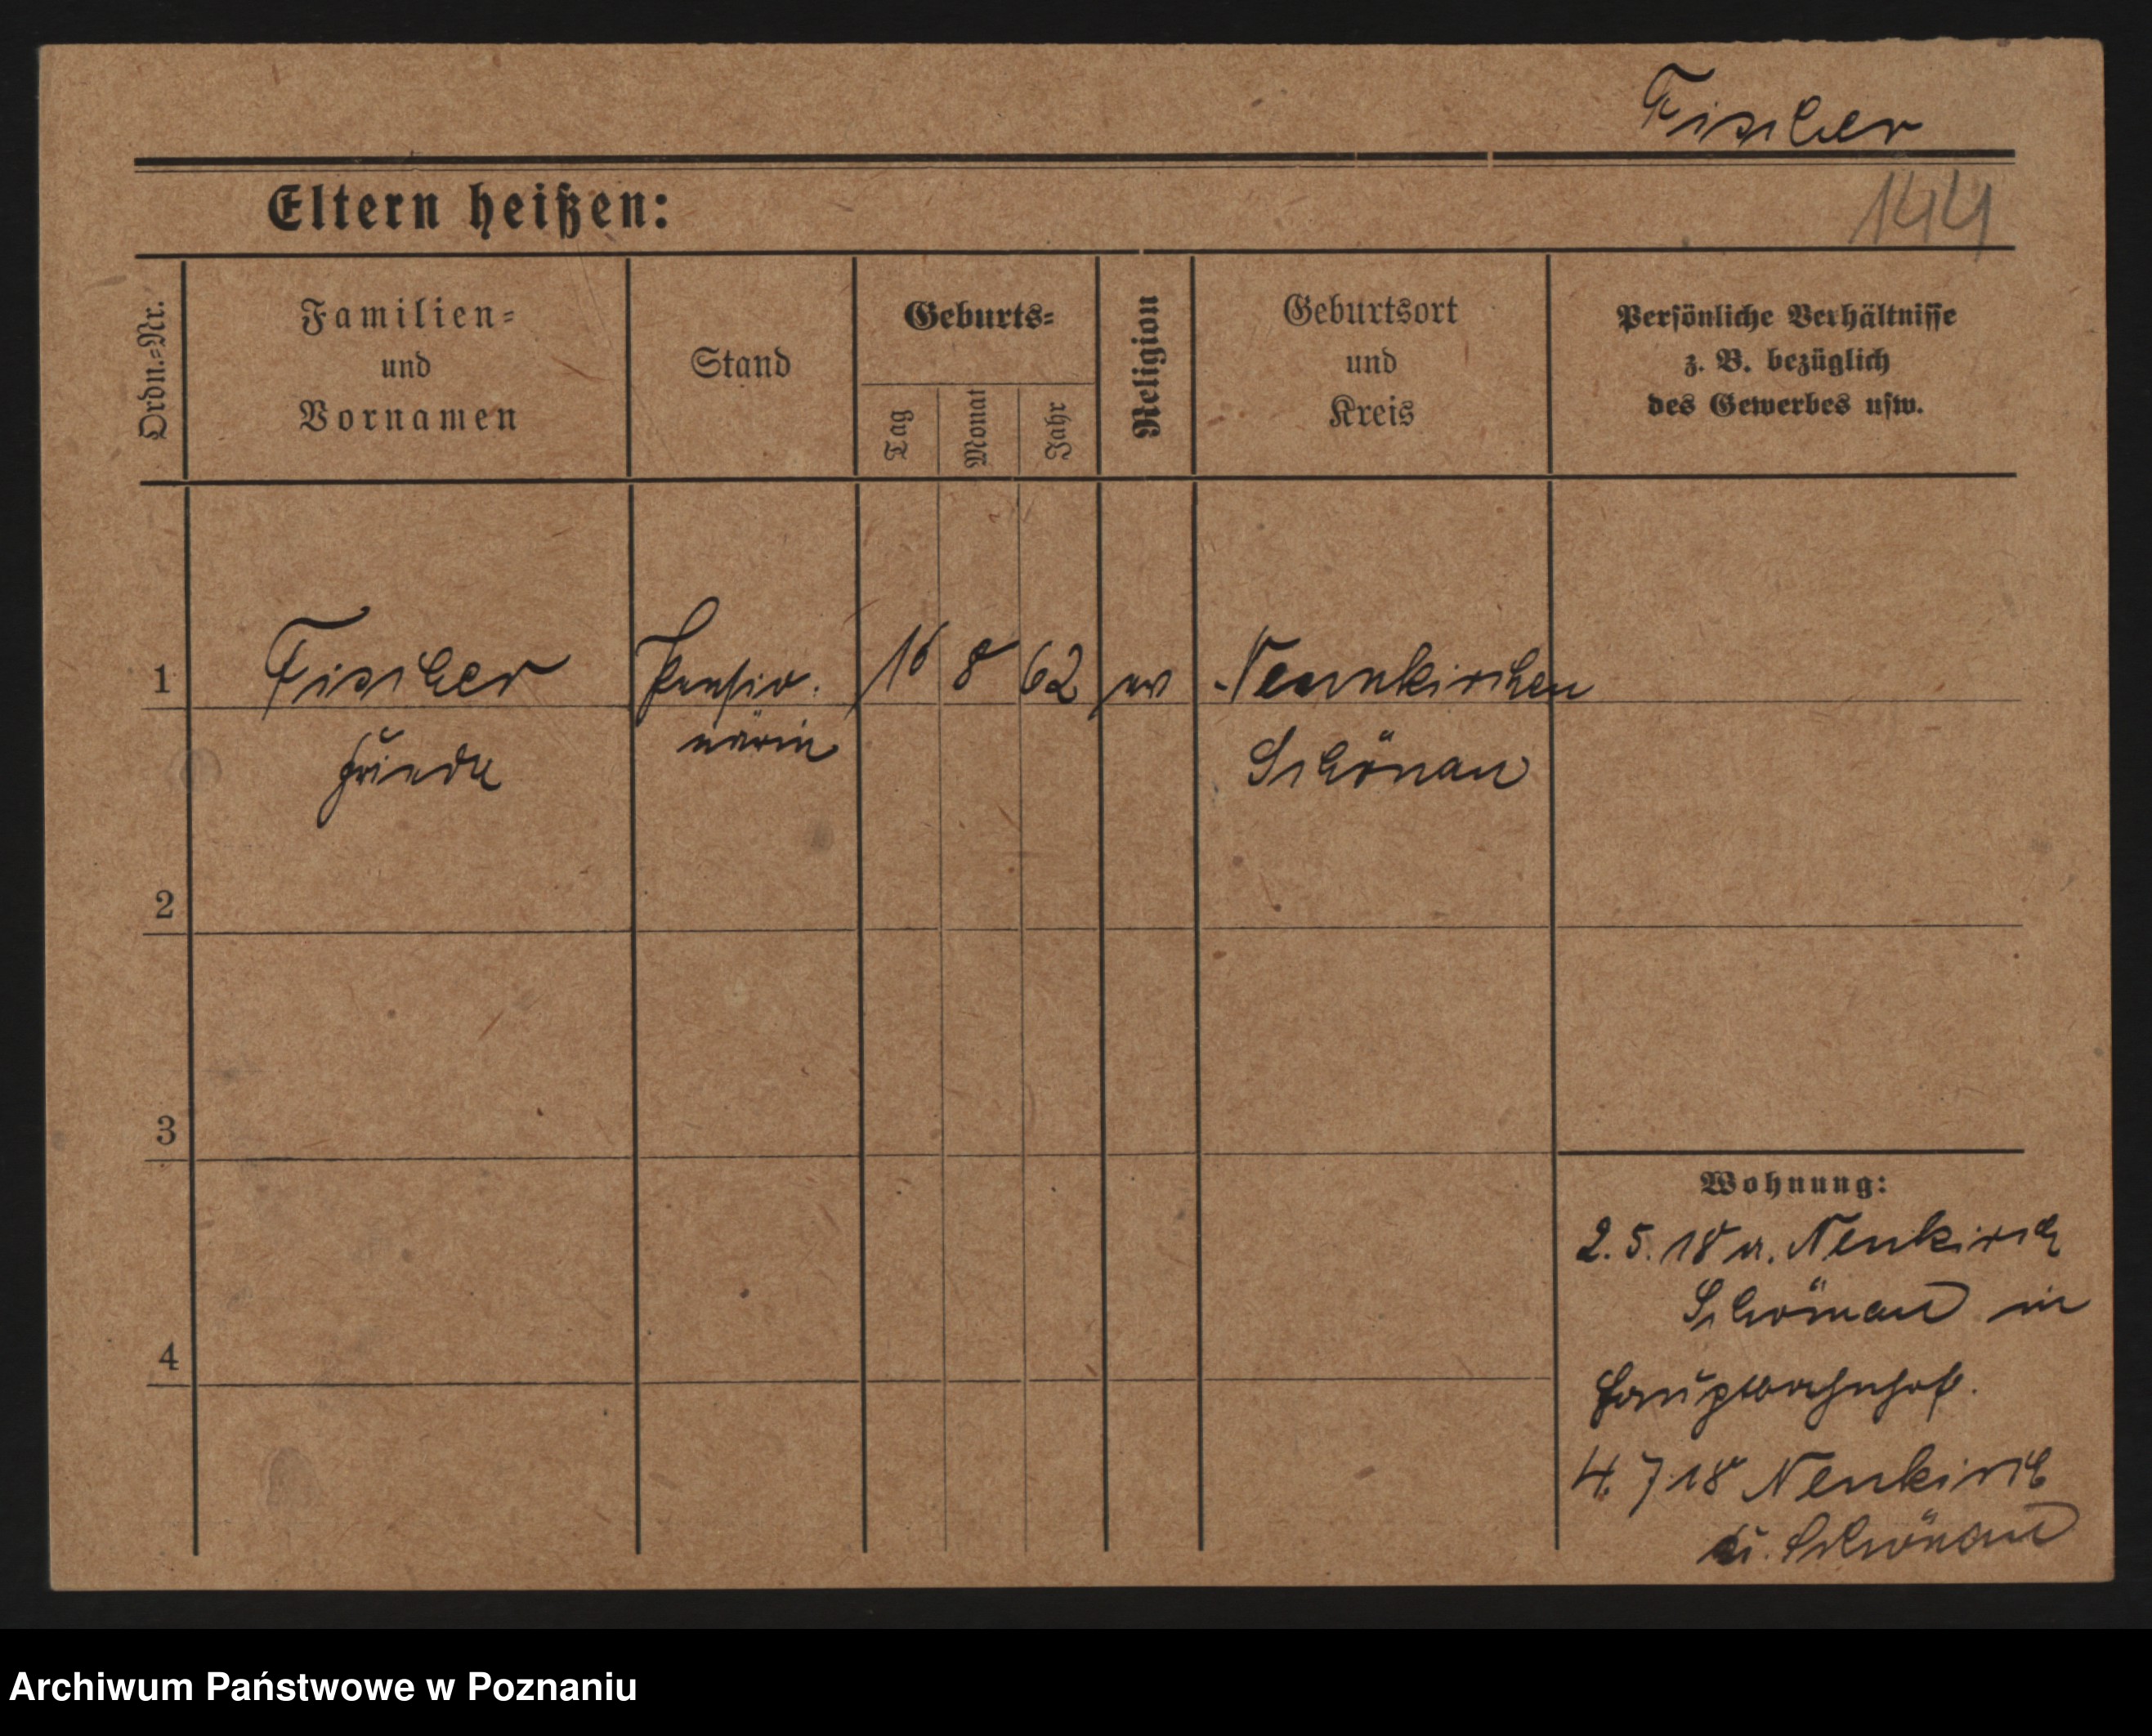 Fischer
144
Eltern heißen:
Ordn.=Nr.
Familien=
und
Vornamen
Stand
Geburts=
Tag
Monat
Jahr
Religion
Geburtsort
und
Kreis
Persönliche Verhältnisse
z. B. bezüglich
des Gewerbes usw.
1
Fischer
Frieda
Pensio-
närin
16 8 62
ev
Neunkirchen
Schönau
2
3
4
Wohnung:
2.5.18 a. Neukirch
Schönau in
Hauptbahnhof.
4.7.18 Neukirch
Schönau
Archiwum Państwowe w Poznaniu